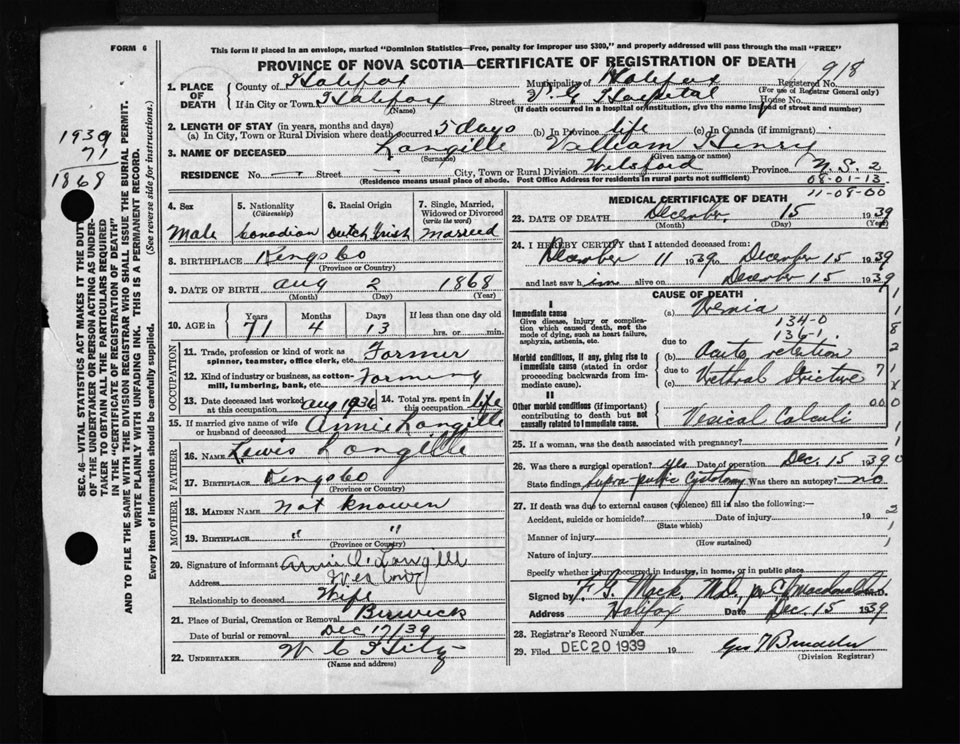 FORM 6
This form if placed in an envelope, marked "Dominion Statistics—Free, penalty for improper use $300," and properly addressed will pass through the mail "FREE"
PROVINCE OF NOVA SCOTIA—CERTIFICATE OF REGISTRATION OF DEATH
918
1. PLACE OF DEATH County of Halifax Municipality of Halifax Registered No.
(For use of Registrar General only)
If in City or Town Halifax Street V. G. Hospital House No.
(Name) (If death occurred in a hospital or institution, give the name instead of street and number)
2. LENGTH OF STAY (in years, months and days)
(a) In City, Town or Rural Division where death occurred 5 days (b) In Province life (c) In Canada (if immigrant)
3. NAME OF DECEASED Langille William Henry
(Surname) (Given name or names)
RESIDENCE No. — Street — City, Town or Rural Division Province N.S. 2
(Residence means usual place of abode. Post Office Address for residents in rural parts not sufficient)
08-01-13
11-08-00
1939
71
1868
SEC. 46—VITAL STATISTICS ACT MAKES IT THE DUTY
OF THE UNDERTAKER OR PERSON ACTING AS UNDER-
TAKER TO OBTAIN ALL THE PARTICULARS REQUIRED
IN THE "CERTIFICATE OF REGISTRATION OF DEATH"
AND TO FILE THE SAME WITH THE DIVISION REGISTRAR WHO SHALL ISSUE THE BURIAL PERMIT.
WRITE PLAINLY WITH UNFADING INK. THIS IS A PERMANENT RECORD.
Every item of information should be carefully supplied. (See reverse side for instructions.)
4. Sex 5. Nationality (Citizenship) 6. Racial Origin 7. Single, Married, Widowed or Divorced (write the word)
Male Canadian Dutch Irish Married
8. BIRTHPLACE Kings Co
(Province or Country)
9. DATE OF BIRTH Aug 2 1868
(Month) (Day) (Year)
10. AGE in Years Months Days If less than one day old
71 4 13 hrs. or min.
OCCUPATION
11. Trade, profession or kind of work as spinner, teamster, office clerk, etc. Farmer
12. Kind of industry or business, as cotton-mill, lumbering, bank, etc. Farming
13. Date deceased last worked at this occupation Aug 1936 14. Total yrs. spent in this occupation life
15. If married give name of wife or husband of deceased Annie Langille
FATHER
16. NAME Lewis Langille
17. BIRTHPLACE Kings Co
(Province or Country)
MOTHER
18. MAIDEN NAME Not Knowen
19. BIRTHPLACE " "
(Province or Country)
20. Signature of informant Annie Langille
Address
Relationship to deceased Wife
21. Place of Burial, Cremation or Removal Berwick
Date of burial or removal Dec 17/39
22. UNDERTAKER
(Name and address)
MEDICAL CERTIFICATE OF DEATH
23. DATE OF DEATH December 15 1939
(Month) (Day) (Year)
24. I HEREBY CERTIFY that I attended deceased from:
December 11 1939 to December 15 1939
and last saw him alive on December 15 1939
CAUSE OF DEATH
I
Immediate cause (a) Uremia
Give disease, injury or complication which caused death, not the mode of dying, such as heart failure, asphyxia, asthenia, etc.
134-0
136-1
due to
Morbid conditions, if any, giving rise to immediate cause (stated in order proceeding backwards from immediate cause).
(b) Acute retention
due to
(c) Urethral Stricture
II
Other morbid conditions (if important) contributing to death but not causally related to immediate cause. Vesical Calculi
25. If a woman, was the death associated with pregnancy?
26. Was there a surgical operation? Yes Date of operation Dec. 15 1939
State findings Supra-pubic Cystotomy Was there an autopsy? no
27. If death was due to external causes (violence) fill in also the following:—
Accident, suicide or homicide? Date of injury 19
(State which)
Manner of injury
(How sustained)
Nature of injury
Specify whether injury occurred in industry, in home, or in public place
Signed by F. G. Mack, M.D., per
Address Halifax Date Dec. 15 1939
28. Registrar's Record Number
29. Filed DEC 20 1939 19
(Division Registrar)